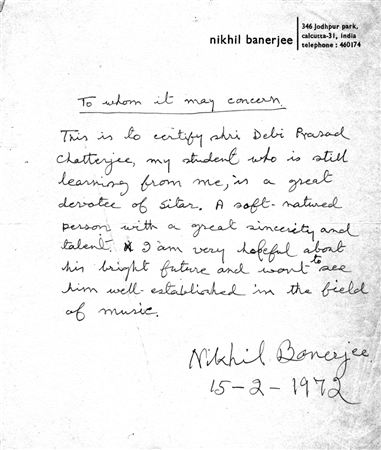 nikhil banerjee
346 jodhpur park,
calcutta-31, india
telephone : 460174
To whom it may concern.
This is to certify shri Debi Prasad
Chatterjee, my student who is still
learning from me, is a great
devotee of Sitar. A soft-natured
person with a great sincerity and
talent. I am very hopeful about
his bright future and want to see
him well-established in the field
of music.
Nikhil Banerjee
15-2-1972